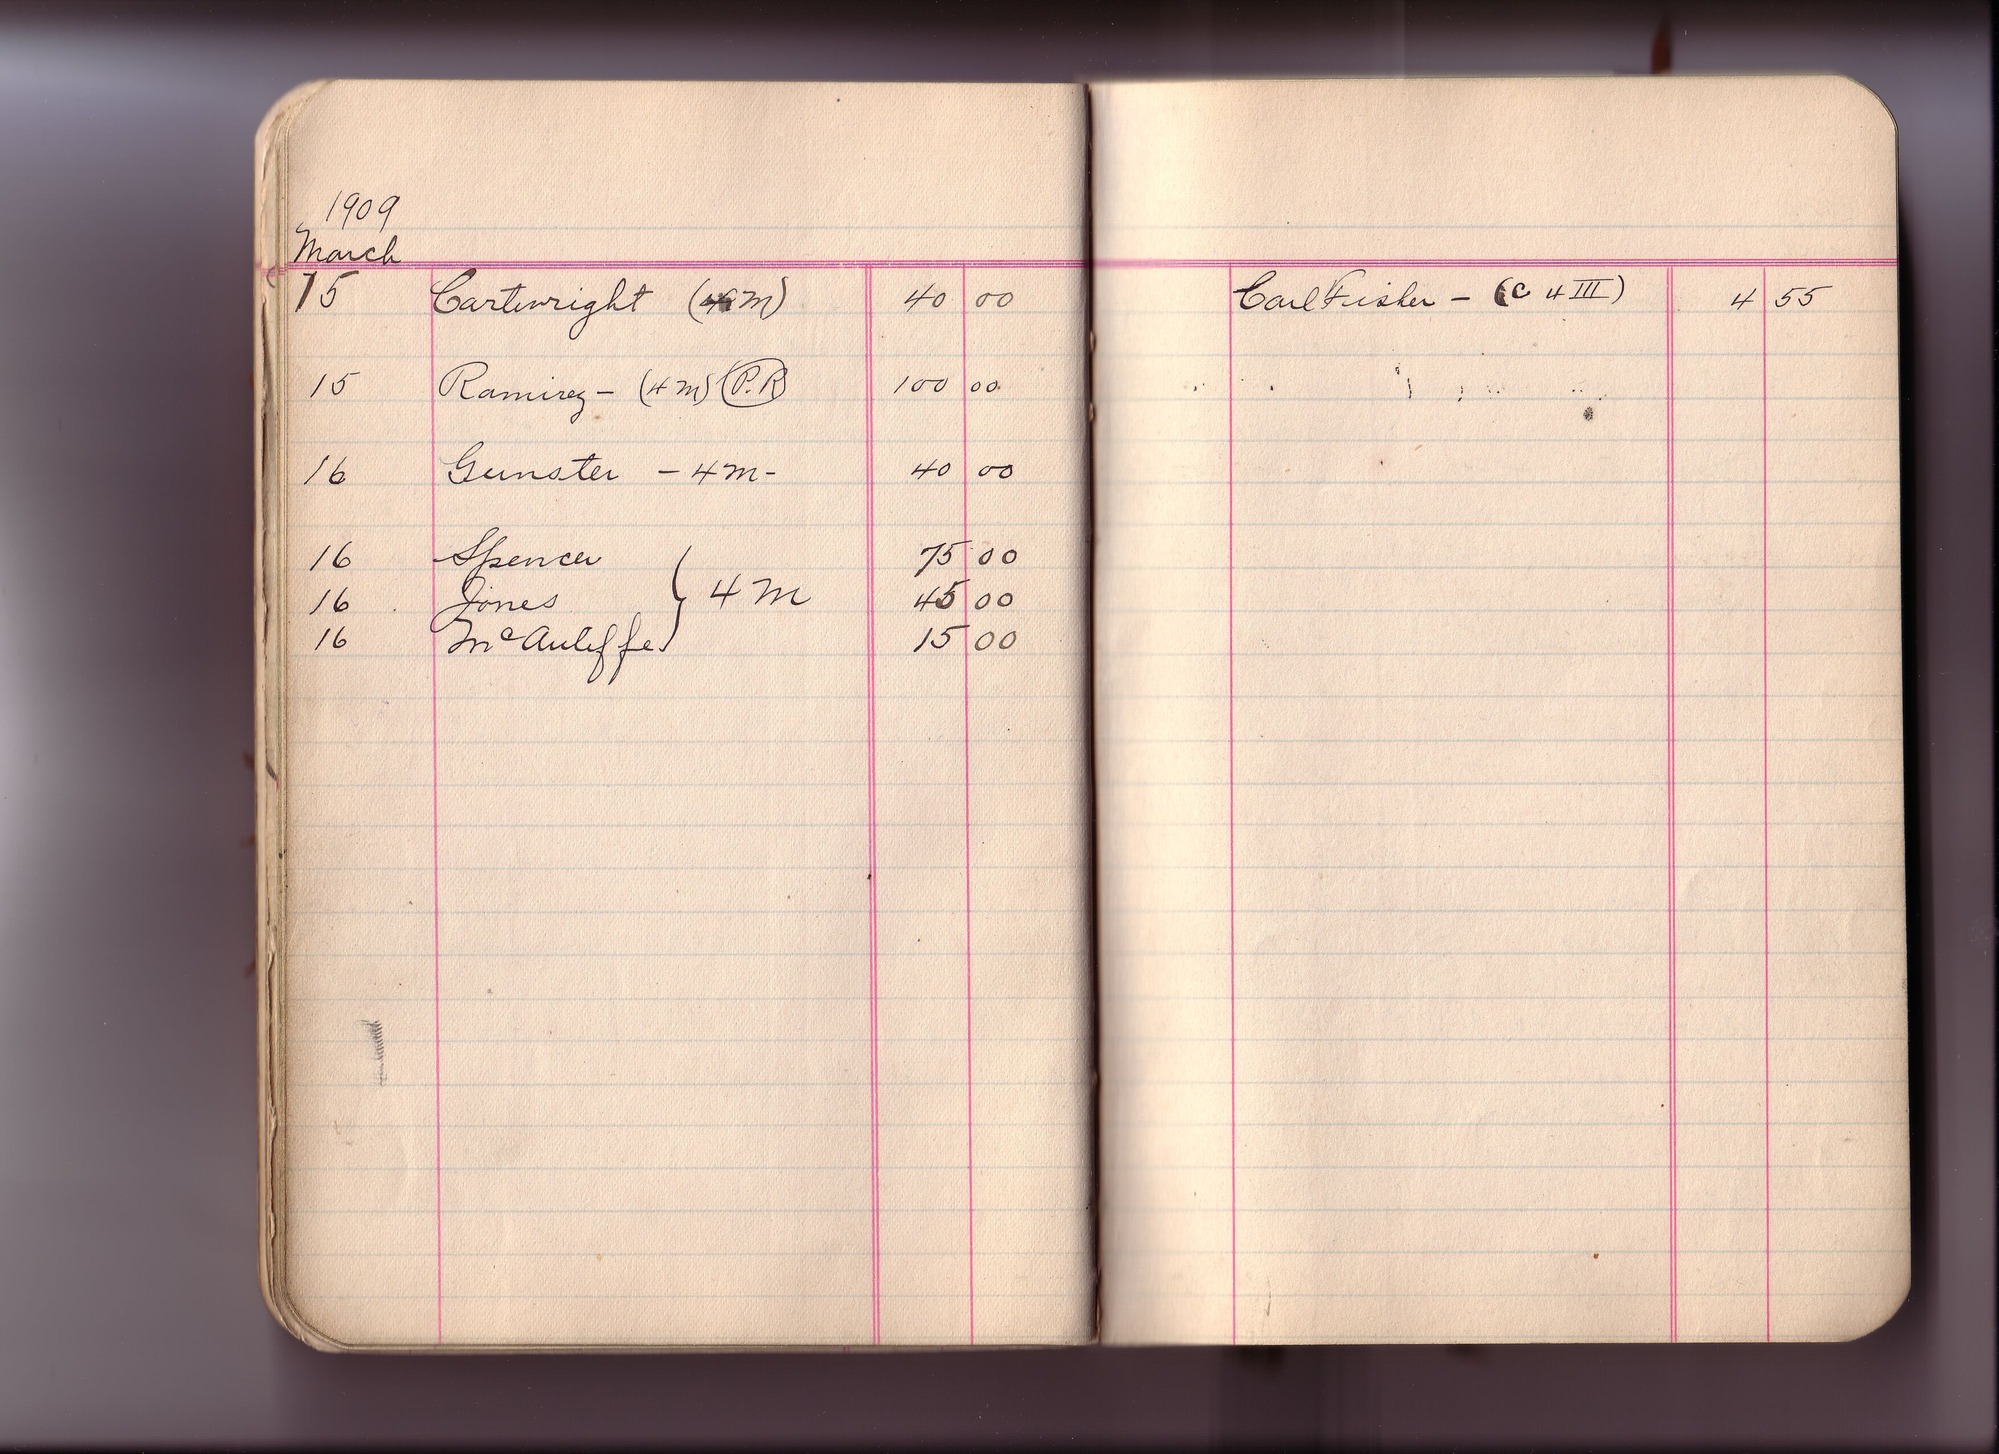 1909
March
15 Cartwright (4m) 40 00
15 Ramirez - (4m) (P.R) 100 00
16 Gunster - 4m - 40 00
16 Spencer 75 00
16 Jones } 4m 45 00
16 McAuliffe 15 00
Carl Fisher - (C 4 III) 4 55